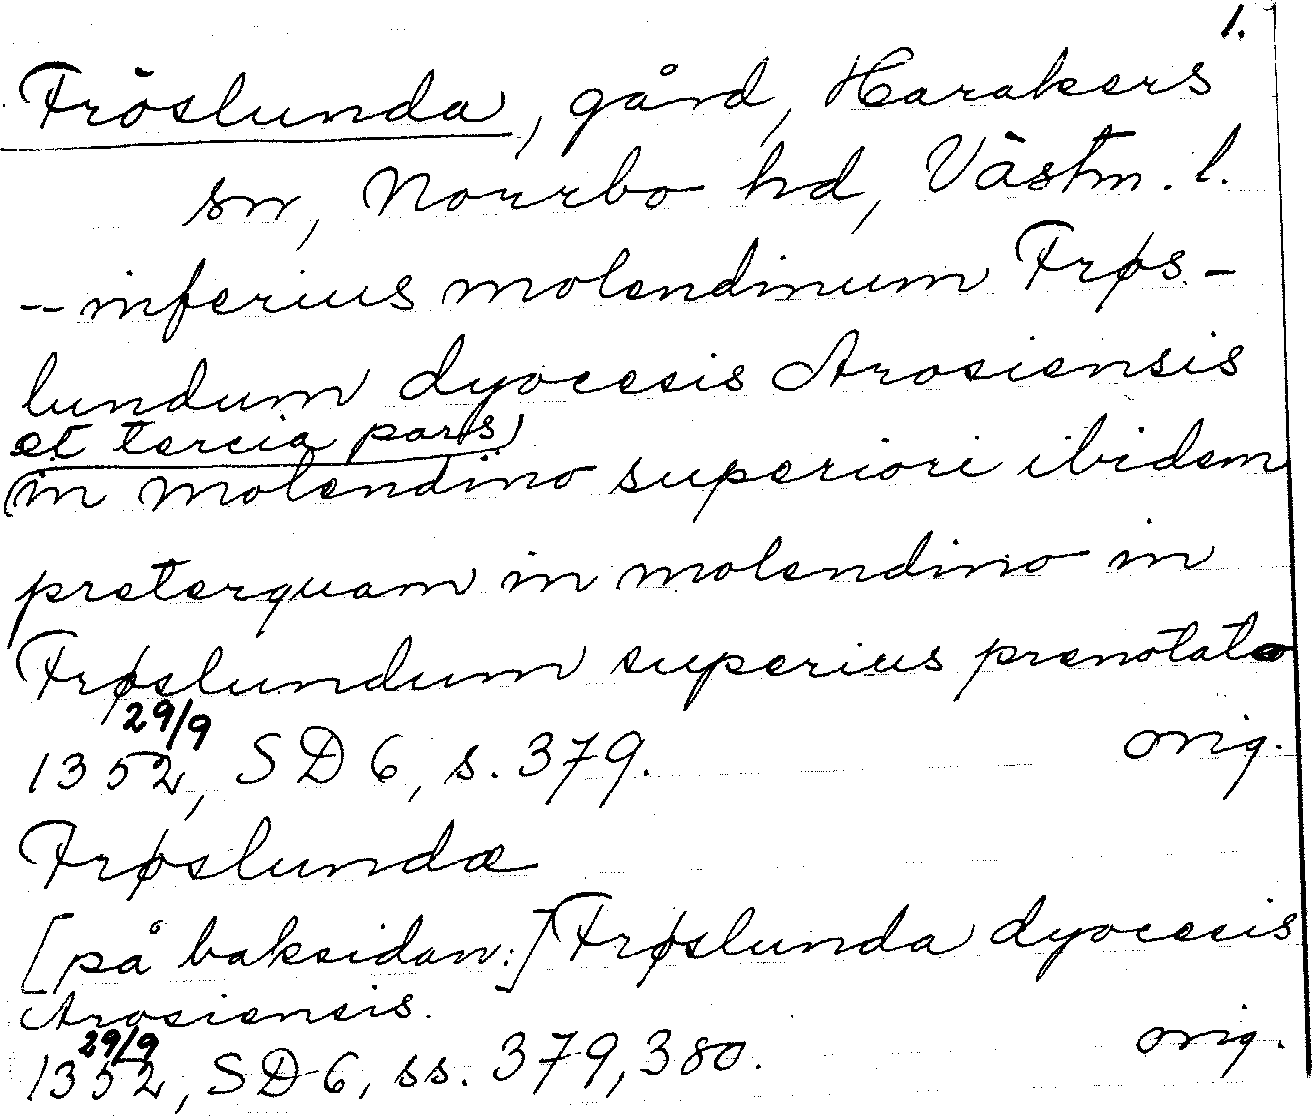 1.
Fröslunda, gård, Harakers
sn, Norrbo hd, Västm. l.
-- inferius molendinum Frøs-
lundum dyocesis Arosiensis
et tercia pars
(in molendino superiori ibidem
preterquam in molendino in
Frøslundum superius prenotato
29/9
1352, SD 6, s. 379. orig.
Frøslundæ
[på baksidan:] Frøslunda dyocesis
Arosiensis.
29/9
1352, SD 6, ss. 379, 380. orig.